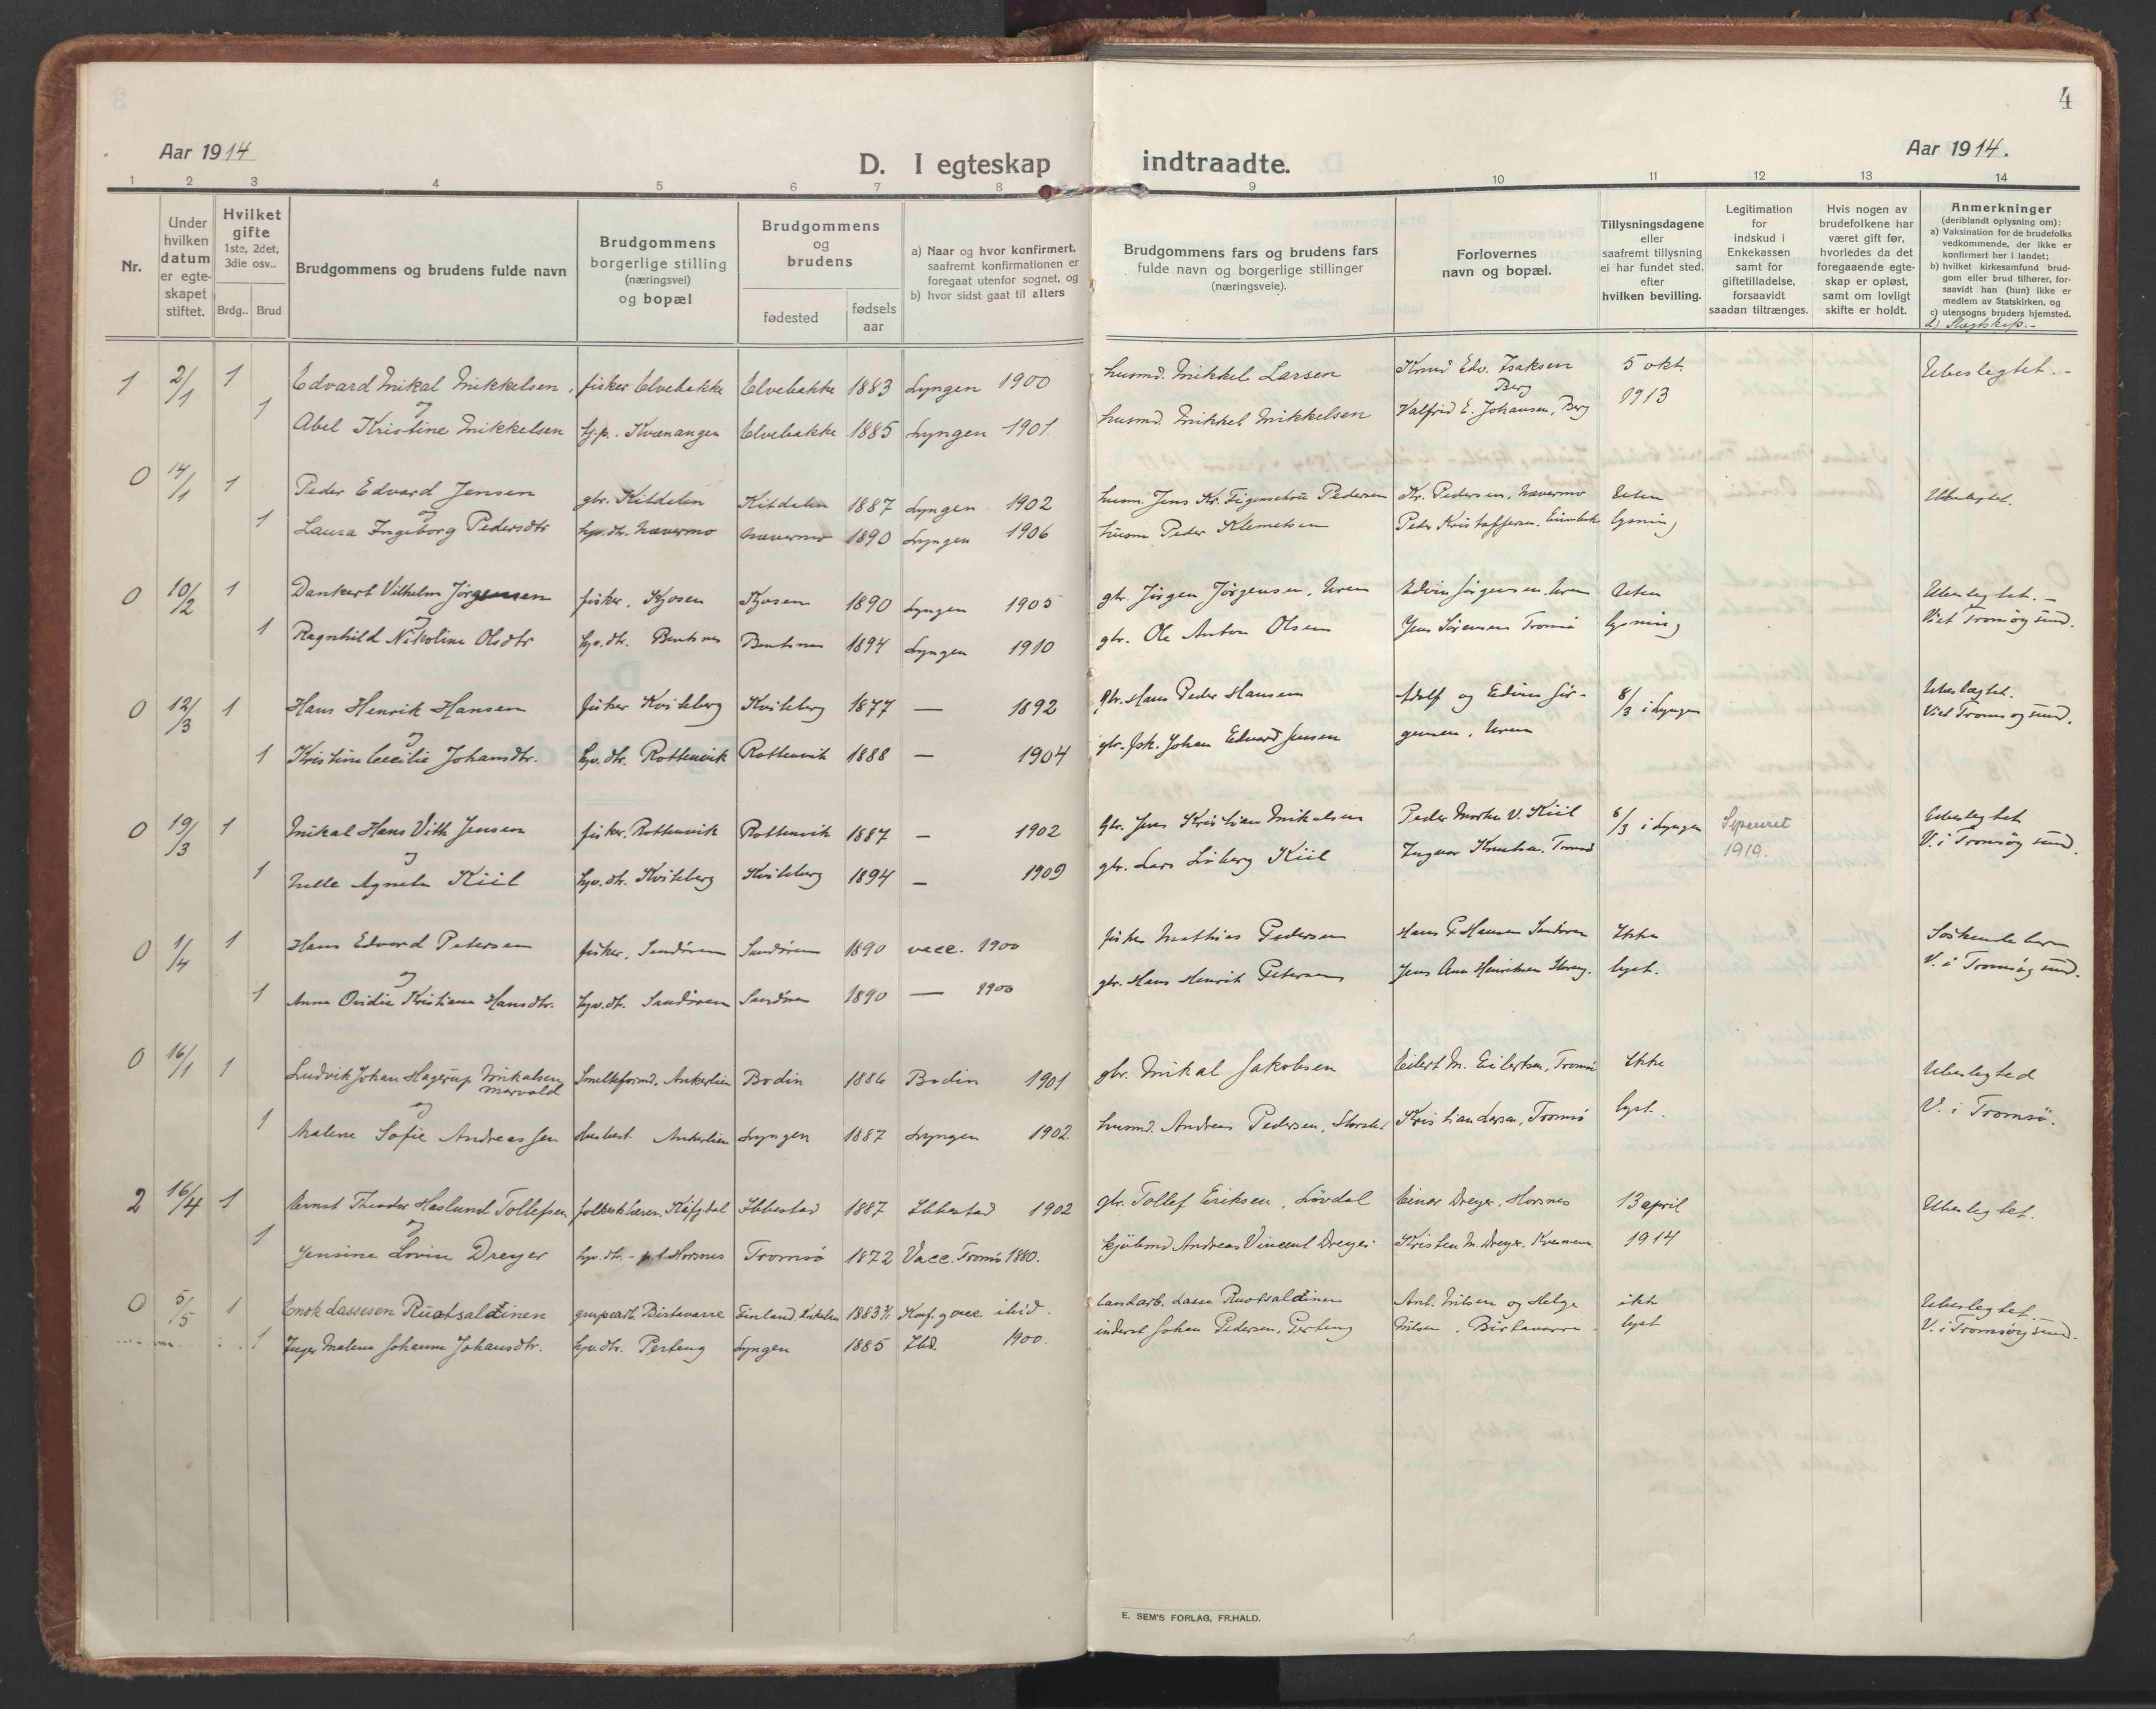 4
Aar 1914
D. I egteskap indtraadte.
Aar 1914.
1 2 3 4 5 6 7 8 9 10 11 12 13 14
Nr.
Under hvilken datum er egteskapet stiftet.
Hvilket gifte 1ste, 2det, 3die osv..
Brdg.. Brud
Brudgommens og brudens fulde navn
Brudgommens borgerlige stilling (næringsvei) og bopæl
Brudgommens og brudens
fødested
fødsels aar
a) Naar og hvor konfirmert, saafremt konfirmationen er foregaat utenfor sognet, og
b) hvor sidst gaat til alters
Brudgommens fars og brudens fars fulde navn og borgerlige stillinger (næringsveie).
Forlovernes navn og bopæl.
Tillysningsdagene eller saafremt tillysning ei har fundet sted, efter hvilken bevilling.
Legitimation for indskud i Enkekassen samt for giftetilladelse, forsaavidt saadan tiltrænges.
Hvis nogen av brudefolkene har været gift før, hvorledes da det foregaaende egteskap er opløst, samt om lovligt skifte er holdt.
Anmerkninger (deriblandt oplysning om):
a) Vaksination for de brudefolks vedkommende, der ikke er konfirmert her i landet;
b) hvilket kirkesamfund brudgom eller brud tilhører, forsaavidt han (hun) ikke er medlem av Statskirken, og
c) utensogns bruders hjemsted.
d) Slegtskap.-
1 2/1 1 Edvard Mikal Mikkelsen, fisker Elvebakke Elvebakke 1883 Lyngen 1900 husmd. Mikkel Larsen Knud Edv. Isaksen Berg 5 okt. Ubeslegtet.-
og
1 Abel Kristine Mikkelsen tj.p. Kvænangen Elvebakke 1885 Lyngen 1901 husmd. Mikkel Mikkelsen Valfrid E. Johansen, Berg 1913
0 14/1 1 Peder Edvard Jensen gbr. Kitdalen Kitdalen 1887 Lyngen 1902 husm. Jens Kr. Pedersen Kr. Pedersen, Nævermo Uten Ubeslegtet.
og
1 Laura Ingeborg Pedersdtr hjv.dtr. Nævermo Nævermo 1890 Lyngen 1906 husm Peder Klemetsen Peder Kristoffersen. lysning
0 10/2 1 Dankert Vilhelm Jørgensen fisker, Kjosen Kjosen 1890 Lyngen 1905 gbr. Jørgen Jørgensen, Uren Edvin Jørgensen, Uren Uten Ubeslegtet.-
og
1 Ragnhild Nikoline Olsdtr hjv.dtr. Bentsnes Bentsnes 1894 Lyngen 1910 gbr. Ole Anton Olsen Jens Sørensen Tromsø lysning Viet Tromsøysund.
0 12/3 1 Hans Henrik Hansen fisker Kviteberg Kviteberg 1877 — 1892 gbr. Hans Peder Hansen Adolf og Edvin Jør- 8/3 i Lyngen Ubeslægtet.
og
Viet Tromsøysund.
1 Kristine Cecilie Johansdtr. hjv.dtr. Rottenvik Rottenvik 1888 — 1904 gbr. fsk. Johan Edvard Jensen gensen, Uren
0 19/3 1 Mikal Hans Vith Jensen fisker, Rottenvik Rottenvik 1887 — 1902 gbr. Jens Kristian Mikalsen Peder Morten V. Kiil 8/3 i Lyngen Separeret 1919. Ubeslegtet
og
V. i Tromsøysund.
1 Nelle Agneta Kiil hjv.dtr. Kviteberg Kviteberg 1894 — 1909 gbr. Lars Kiil Ingvar Knutsen. Tromsø
0 1/4 1 Hans Edvard Petersen fisker, Sandøren Sandøren 1890 vacc. 1900 fisker Mathias Pedersen Hans P Hansen Sandøren Ikke Søskendebarn
og
1 Anna Ovidie Kristiane Hansdtr. hjv.dtr. Sandøren Sandøren 1890 — 1900 gbr. Hans Henrik Petersen Jens Henriksen lyst. V. i Tromsøysund.
0 16/1 1 Ludvik Johan Hagerup Mikalsen Smelteformd. Ankerlien Bodin 1886 Bodin 1901 gbr. Mikal Jakobsen Eilert M. Eilertsen, Tromsø Ikke Ubeslegted
Marvold
og
1 Malene Sofie Andreassen Husbest. Ankerlien Lyngen 1887 Lyngen 1902 husmd. Andreas Pedersen, Kristian Larsen, Tromsø lyst. V. i Tromsø.
2 16/4 1 Ernst Theodor Haslund Tollefsen folkesk.lærer, Kåfjdal Ibbestad 1887 Ibbestad 1902 gbr. Tollef Eriksen, Lövdal Einar Dreyer, Horsnes 13 april Ubeslegtet.
og
1 Jensine Lovise Dreyer hjv.dtr. - Horsnes Tromsø 1872 Vacc. Tromsø 1880. kjöbmd Andreas Vincent Dreyer Kristen M. Dreyer, 1914
0 5/5 1 Enok Lassesen Ruotsalainen grubearb. Birtavarre Finland. 1883 Konf. g vacc. ibid. landarb. Lasse Ruotsalainen Ant. Nilsen og Helge ikke Ubeslegtet.
1 Inger Malene Johanne Johansdtr. hjv.dtr. Perteng Lyngen 1885 Ibd. 1900. inderst Johan Pedersen, Perteng Nilsen, Birtavarre lyst V. i Tromsøysund.
E. SEM'S FORLAG, FR.HALD.